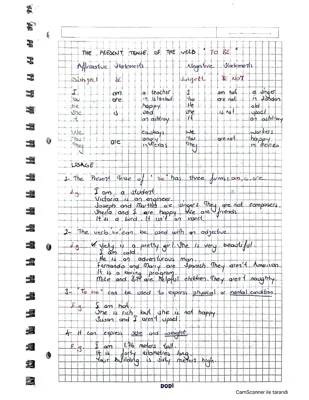 THE PRESENT TENSE OF THE VERB "TO BE"
Affirmative Statements Negative Statements
Subject BE Subject BE NOT
I am a teacher I am not a singer
You are in Istanbul You are not in London
He happy He old
She is and She is not upset
It an ashtray It an ashtray
We cowboys We workers
You are angry You are not happy
They They in Mexico
USAGE:
1- The Present Tense of "be" has three forms; am, is, are
E.g. I am a student.
Victoria is an engineer.
Joseph and Martha are singers. They are not composers.
Sheila and I are happy. We are friends.
It is a bird. It isn't an
2- The verb "be" can be used with an adjective.
E.g. Vicky is a pretty girl. She is very beautiful.
I am cold.
He is an adventurous man.
Fernando and Mary are Spanish. They aren't American.
It is a boring program.
Mice and Bill are helpful children. They aren't naughty.
3- "To be" can be used to express physical or mental condition.
E.g. I am hot.
She is rich but she is not happy
Susan and I aren't upset.
4- It can express size and weight.
E.g. I am 1.76 meters tall.
It is forty kilometres long.
Your building is sixty metres high.
DODİ
CamScanner ile tarandı